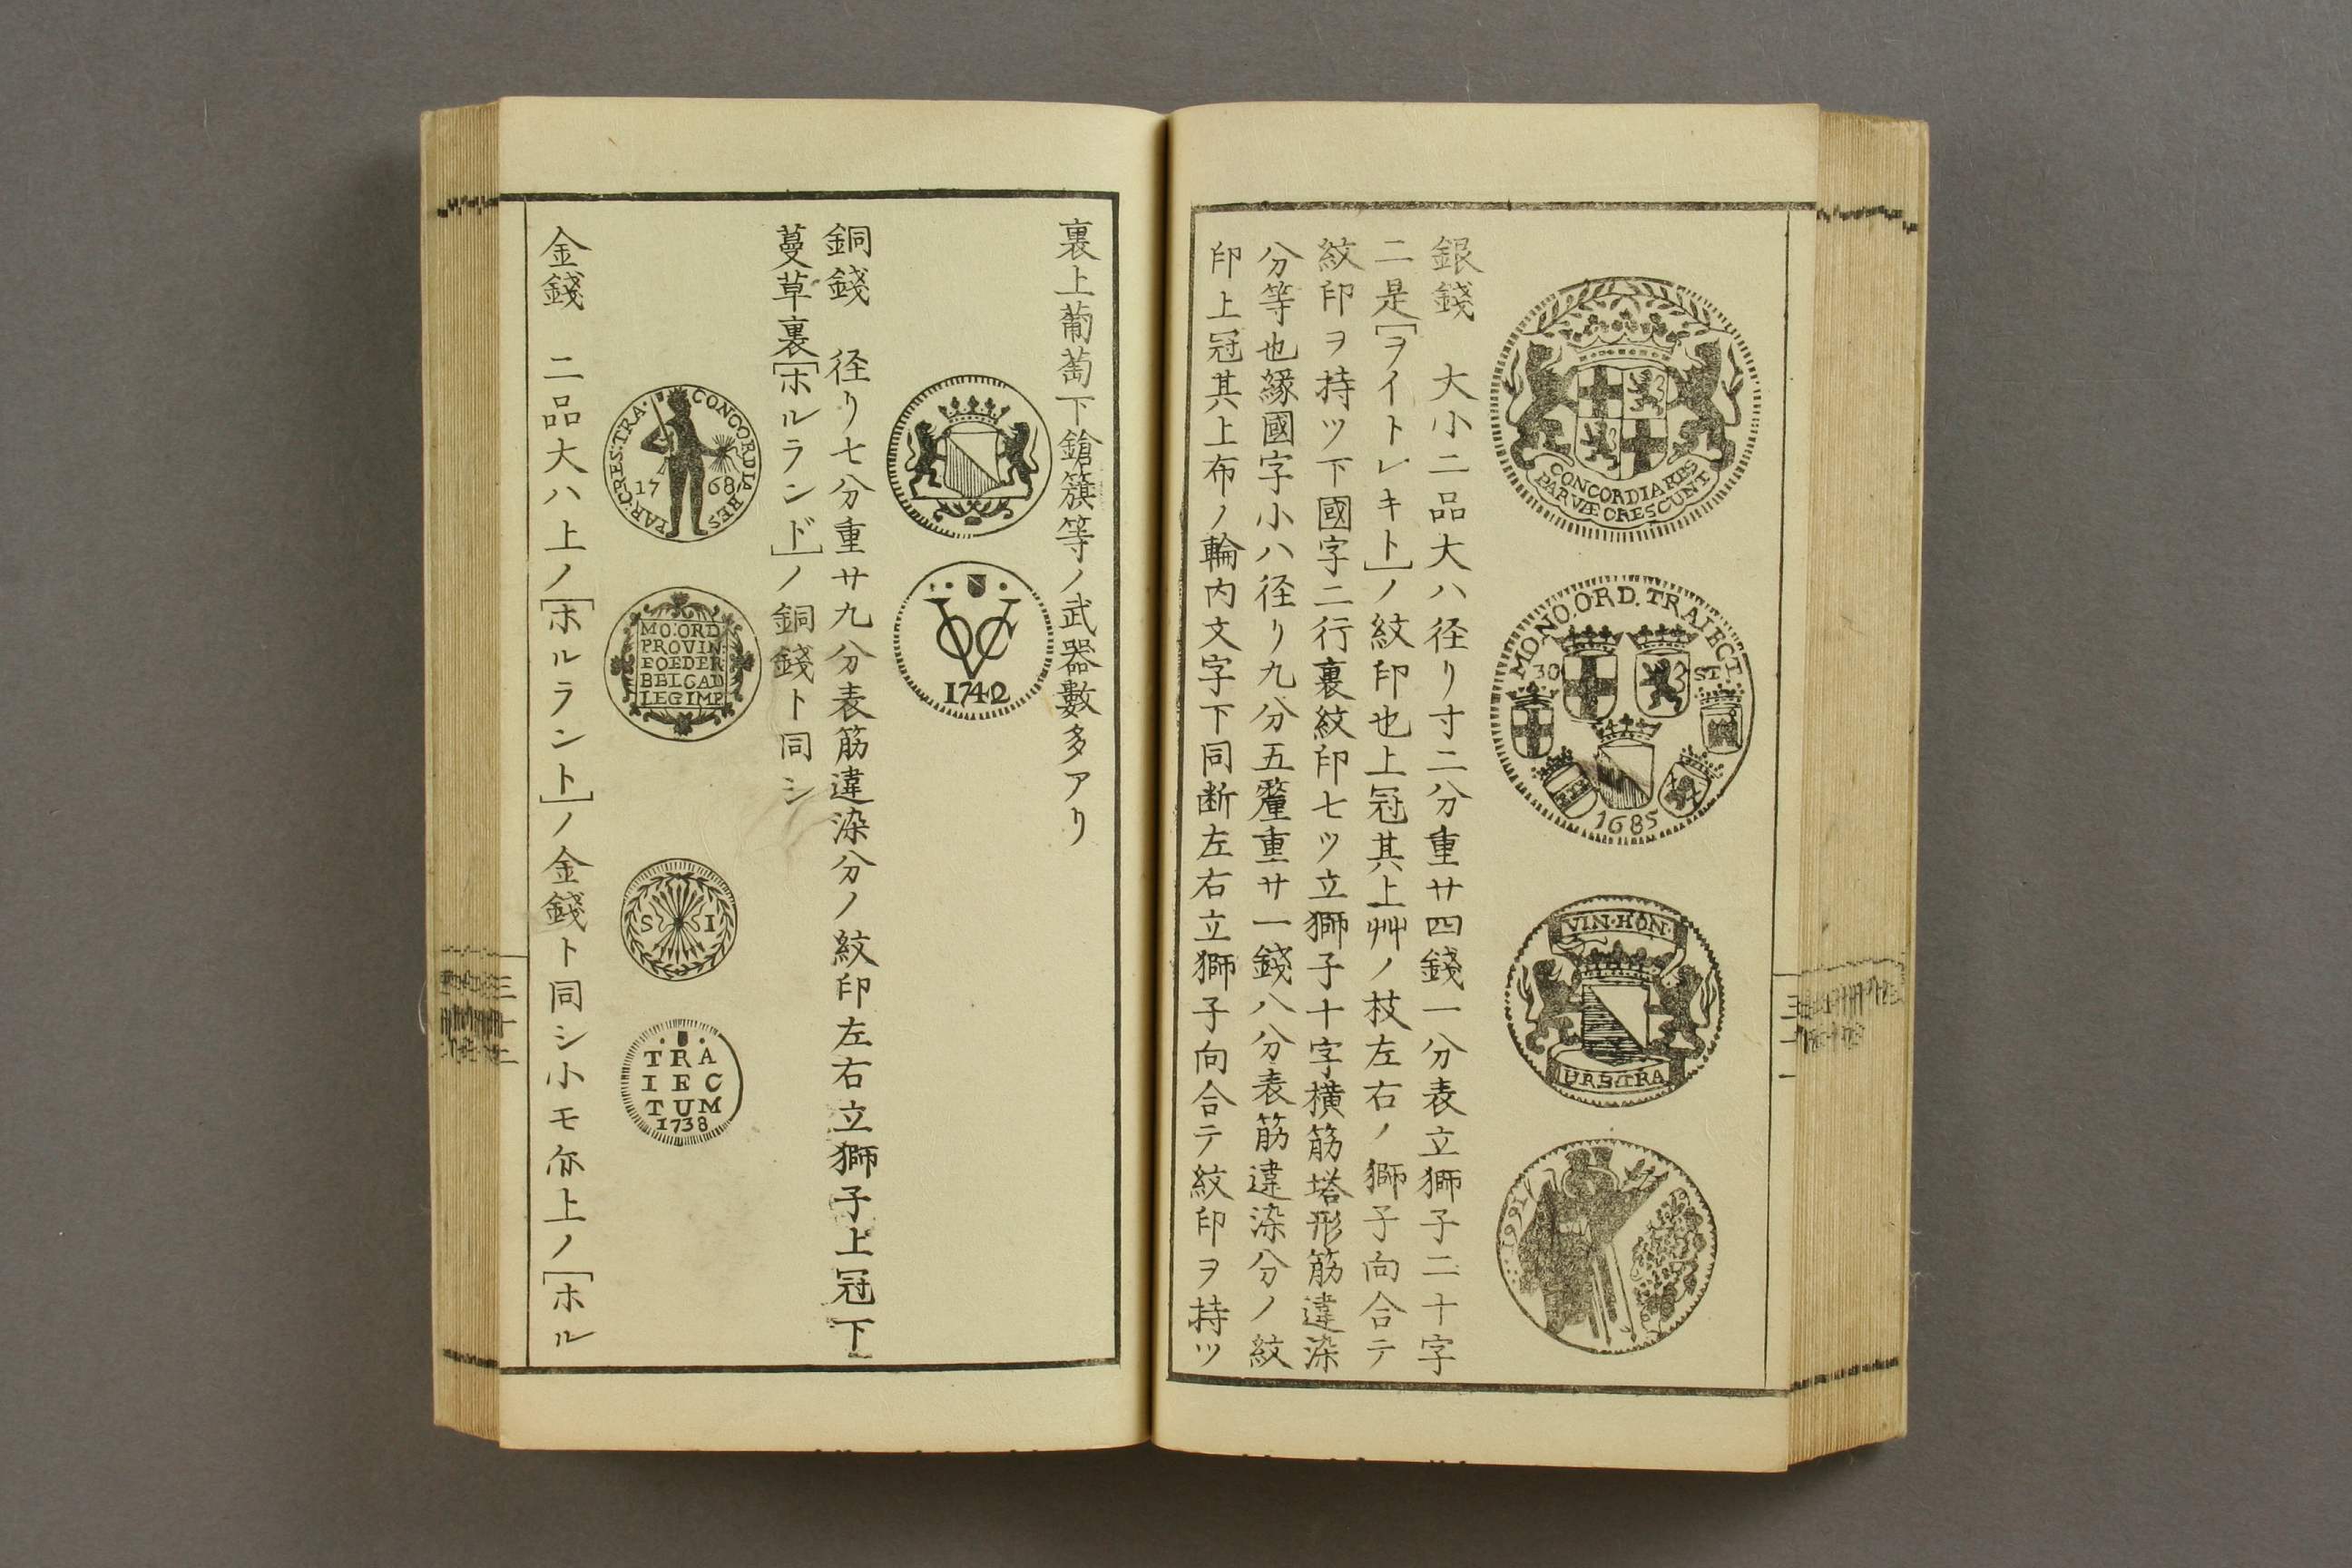 CONCORDIA RES
PARVÆ CRESCUNT
MO.NO.ORD.TRAIECT
30
ST
1685
VIN·HON·
URB·TRA
1661
銀錢 大小二品大ハ径リ寸二分重サ四錢一分表立獅子二十字
二是[ヲイトレキト]ノ紋印也上冠其上艸ノ枝左右ノ獅子向合テ
紋印ヲ持ツ下國字二行裏紋印七ツ立獅子十字横筋塔形筋違染
分等也縁國字小ハ径リ九分五釐重サ一錢八分表筋違染分ノ紋
印上冠其上布ノ輪内文字下同断左右立獅子向合テ紋印ヲ持ツ
三十一
裏上葡萄下鎗籏等ノ武器數多アリ
VOC
1742
銅錢 径リ七分重サ九分表筋違染分ノ紋印左右立獅子上冠下
蔓草裏[ホルランド]ノ銅錢ト同シ
CONCORDIA RES PAR:CRES:TRA·
17 68
MO:ORD
PROVIN·
FOEDER
BELGAD
LEGIMP
S I
TRA
IEC
TUM
1738
金錢 二品大ハ上ノ[ホルラント]ノ金錢ト同シ小モ尓上ノ[ホル
三十二